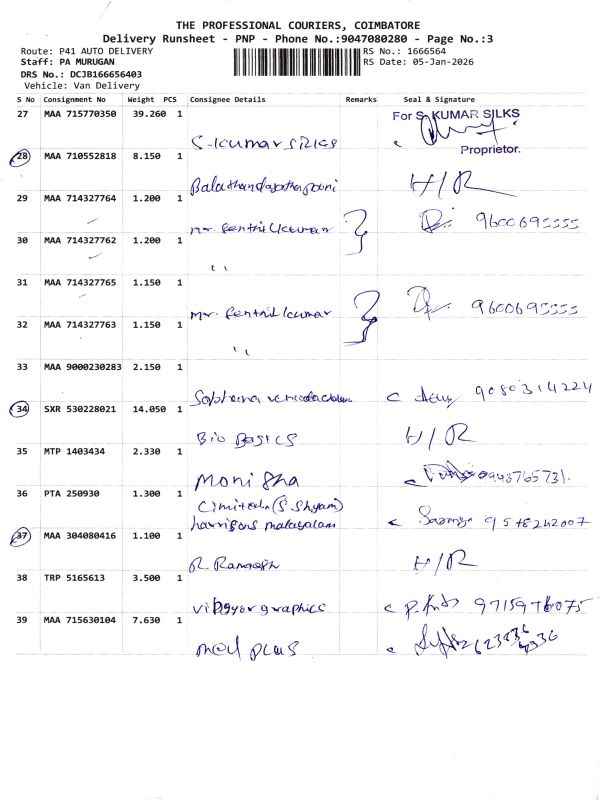 THE PROFESSIONAL COURIERS, COIMBATORE
Delivery Runsheet - PNP - Phone No.:9047080280 - Page No.:3
Route: P41 AUTO DELIVERY
RS No.: 1666564
Staff: PA MURUGAN
RS Date: 05-Jan-2026
DRS No.: DCJB166656403
Vehicle: Van Delivery
S No Consignment No Weight PCS Consignee Details Remarks Seal & Signature
27 MAA 715770350 39.260 1
For S. KUMAR SILKS
S-Kumar silks
Proprietor.
28 MAA 710552818 8.150 1
H/R
29 MAA 714327764 1.200 1
mr. Senthilkumar 9600695555
30 MAA 714327762 1.200 1
31 MAA 714327765 1.150 1
mr. Senthilkumar 9600695555
32 MAA 714327763 1.150 1
33 MAA 9000230283 2.150 1
9080314224
34 SXR 530228021 14.050 1
Bio Basics H/R
35 MTP 1403434 2.330 1
Monisha
36 PTA 250930 1.300 1
Limited (S. Shyam)
harrisons malayalam 9578242007
37 MAA 304080416 1.100 1
R. Ramesh H/R
38 TRP 5165613 3.500 1
vibgyor graphics
39 MAA 715630104 7.630 1
plus